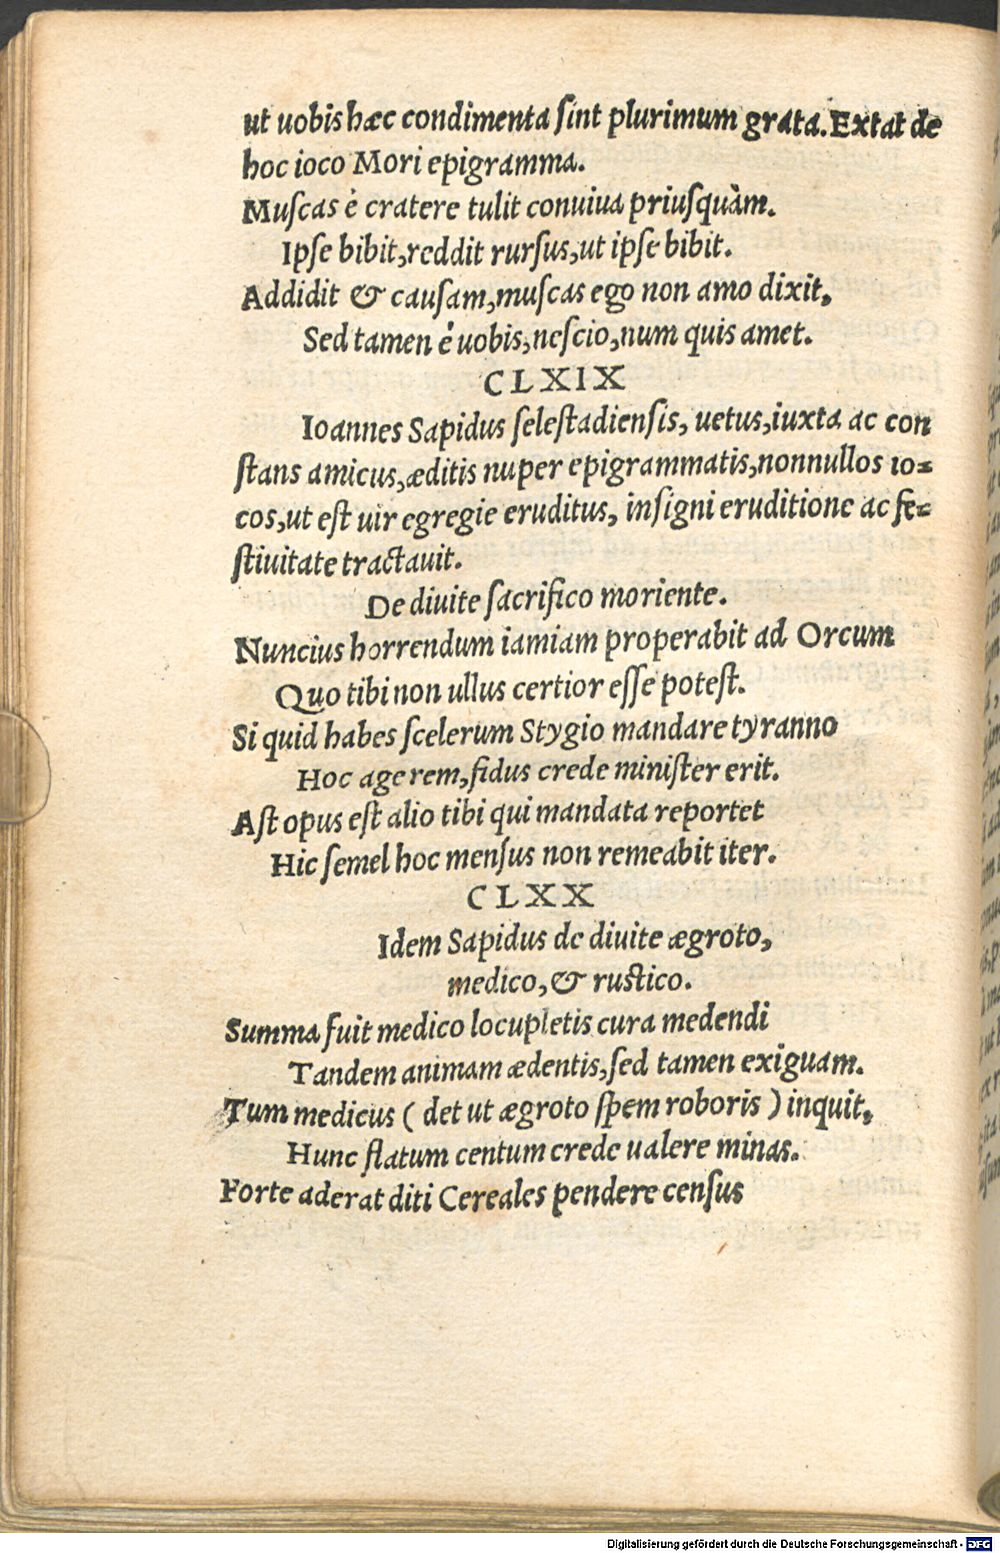 ut uobis hæc condimenta ſint plurimum grata. Extat de
hoc ioco Mori epigramma.
Muſcas è cratere tulit conuiua priuſquàm.
Ipſe bibit, reddit rurſus, ut ipſe bibit.
Addidit & cauſam, muſcas ego non amo dixit,
Sed tamen è uobis, neſcio, num quis amet.
CLXIX
Ioannes Sapidus ſeleſtadienſis, uetus, iuxta ac con
ſtans amicus, æditis nuper epigrammatis, nonnullos io=
cos, ut eſt uir egregie eruditus, inſigni eruditione ac fe=
ſtiuitate tractauit.
De diuite ſacrifico moriente.
Nuncius horrendum iamiam properabit ad Orcum
Quo tibi non ullus certior eſſe poteſt.
Si quid habes ſcelerum Stygio mandare tyranno
Hoc age rem, fidus crede miniſter erit.
Aſt opus eſt alio tibi qui mandata reportet
Hic ſemel hoc menſus non remeabit iter.
CLXX
Idem Sapidus de diuite ægroto,
medico, & ruſtico.
Summa fuit medico locupletis cura medendi
Tandem animam ædentis, ſed tamen exiguam.
Tum medicus ( det ut ægroto ſpem roboris ) inquit,
Hunc flatum centum crede ualere minas.
Forte aderat diti Cereales pendere cenſus
Digitalisierung gefördert durch die Deutsche Forschungsgemeinschaft - DFG